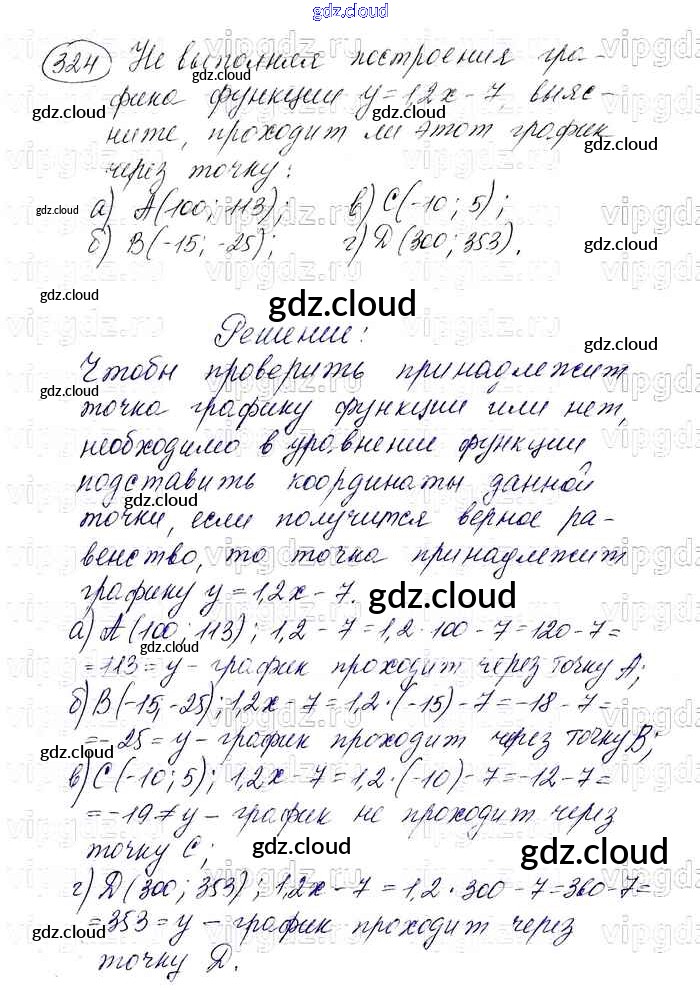 gdz.cloud
324 Не выполняя построения гра-
фика функции y = 1,2x - 7, выяс-
ните, проходит ли этот график
через точку:
а) A(100; 113); в) C(-10; 5);
б) B(-15; -25); г) D(300; 353).
Решение:
Чтобы проверить принадлежит
точка графику функции или нет,
необходимо в уравнение функции
подставить координаты данной
точки, если получится верное ра-
венство, то точка принадлежит
графику y = 1,2x - 7.
а) A(100; 113); 1,2 - 7 = 1,2 · 100 - 7 = 120 - 7 =
= 113 = y - график проходит через точку A;
б) B(-15; -25); 1,2x - 7 = 1,2 · (-15) - 7 = -18 - 7 =
= -25 = y - график проходит через точку B;
в) C(-10; 5); 1,2x - 7 = 1,2 · (-10) - 7 = -12 - 7 =
= -19 ≠ y - график не проходит через
точку C;
г) D(300; 353); 1,2x - 7 = 1,2 · 300 - 7 = 360 - 7 =
= 353 = y - график проходит через
точку D.